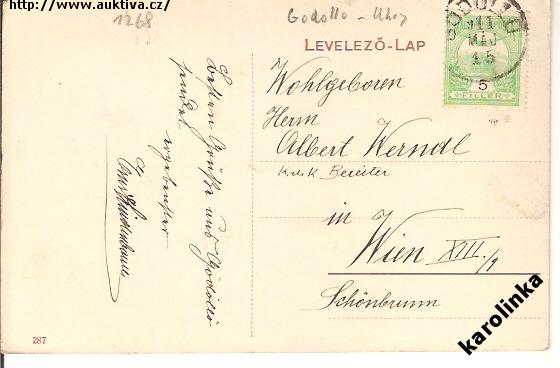 http://www.auktiva.cz/
1268
Godollo - Uhry
LEVELEZŐ-LAP
GÖDÖLLŐ
911
MÁJ
15
5
FILLÉR
Wohlgeboren
Herrn
Albert Werndl
K.u.K Bereiter
in
Wien XIII./1
Schönbrunn
Besten Grüße aus Gödöllő
sendet
ergebenster
287
karolinka